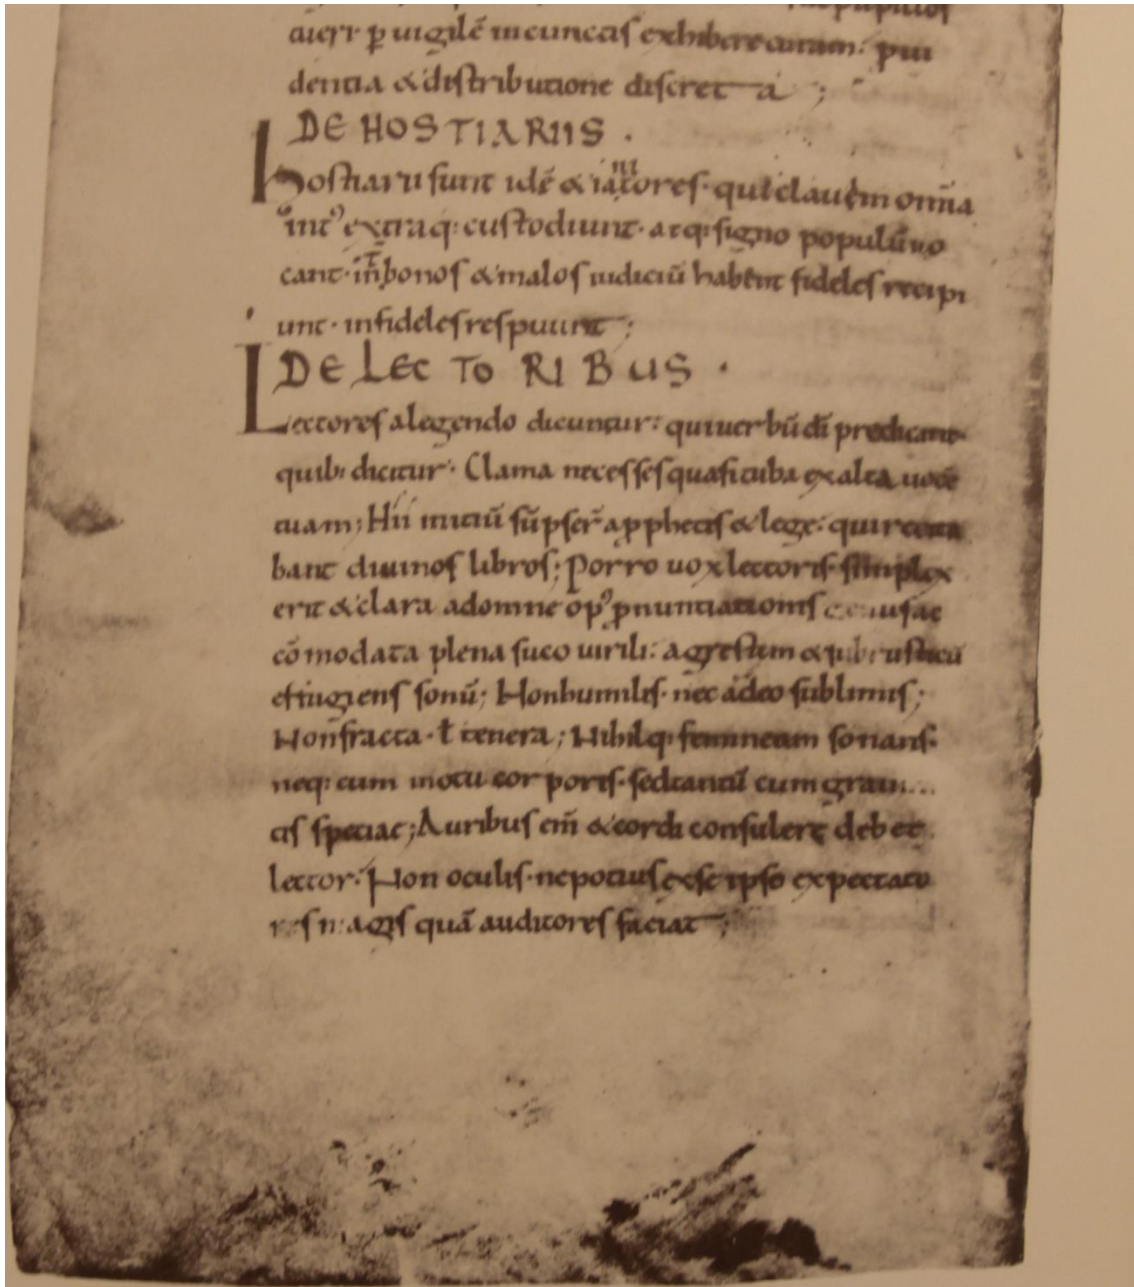 auert ꝑ uigilē in cunctis exhibere curam. pui
dentia &distributione discreta;
DE HOSTIARIIS .
Hostiarii sunt idē & ianitores· qui clauem omīa
intꝰ extraq: custodiunt· atq: signo populū uo
cant· inť bonos & malos iudiciū habent fideles recipi
unt· infideles respuunt;
DE LECTORIBUS ·
Lectores a legendo dicuntur: qui uerbū dī predicant·
quib: dicitur· Clama ne cesses quasi tuba exalta uocē
tuam; Hii initiū sūpser̄ a ꝓphetis & lege: qui recita
bant diuinos libros; Porro uox lectoris simplex
erit & clara ad omne opꝰ ꝓnuntiationis ac
cōmodata plena suco uirili: agrestum & rusticū
effugiens sonū; Non humilis· nec adeo sublimis;
Non fracta· ł tenera; Nihilq: femineum sonans·
neq: cum motu corporis· sed tantū cum graui
tis speciae; Auribus em̄ & cordi consulere debet
lector· Non oculis· ne potius ex se ipso expectato
res magis quā auditores faciat;